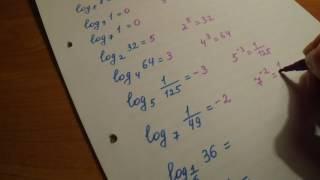 log₇ 1 = 0
log₂ 32 = 5 2⁵ = 32
log₄ 64 = 3 4³ = 64
log₅ 1/125 = -3 5⁻³ = 1/125
log₇ 1/49 = -2 7⁻² = 1
log 36 =